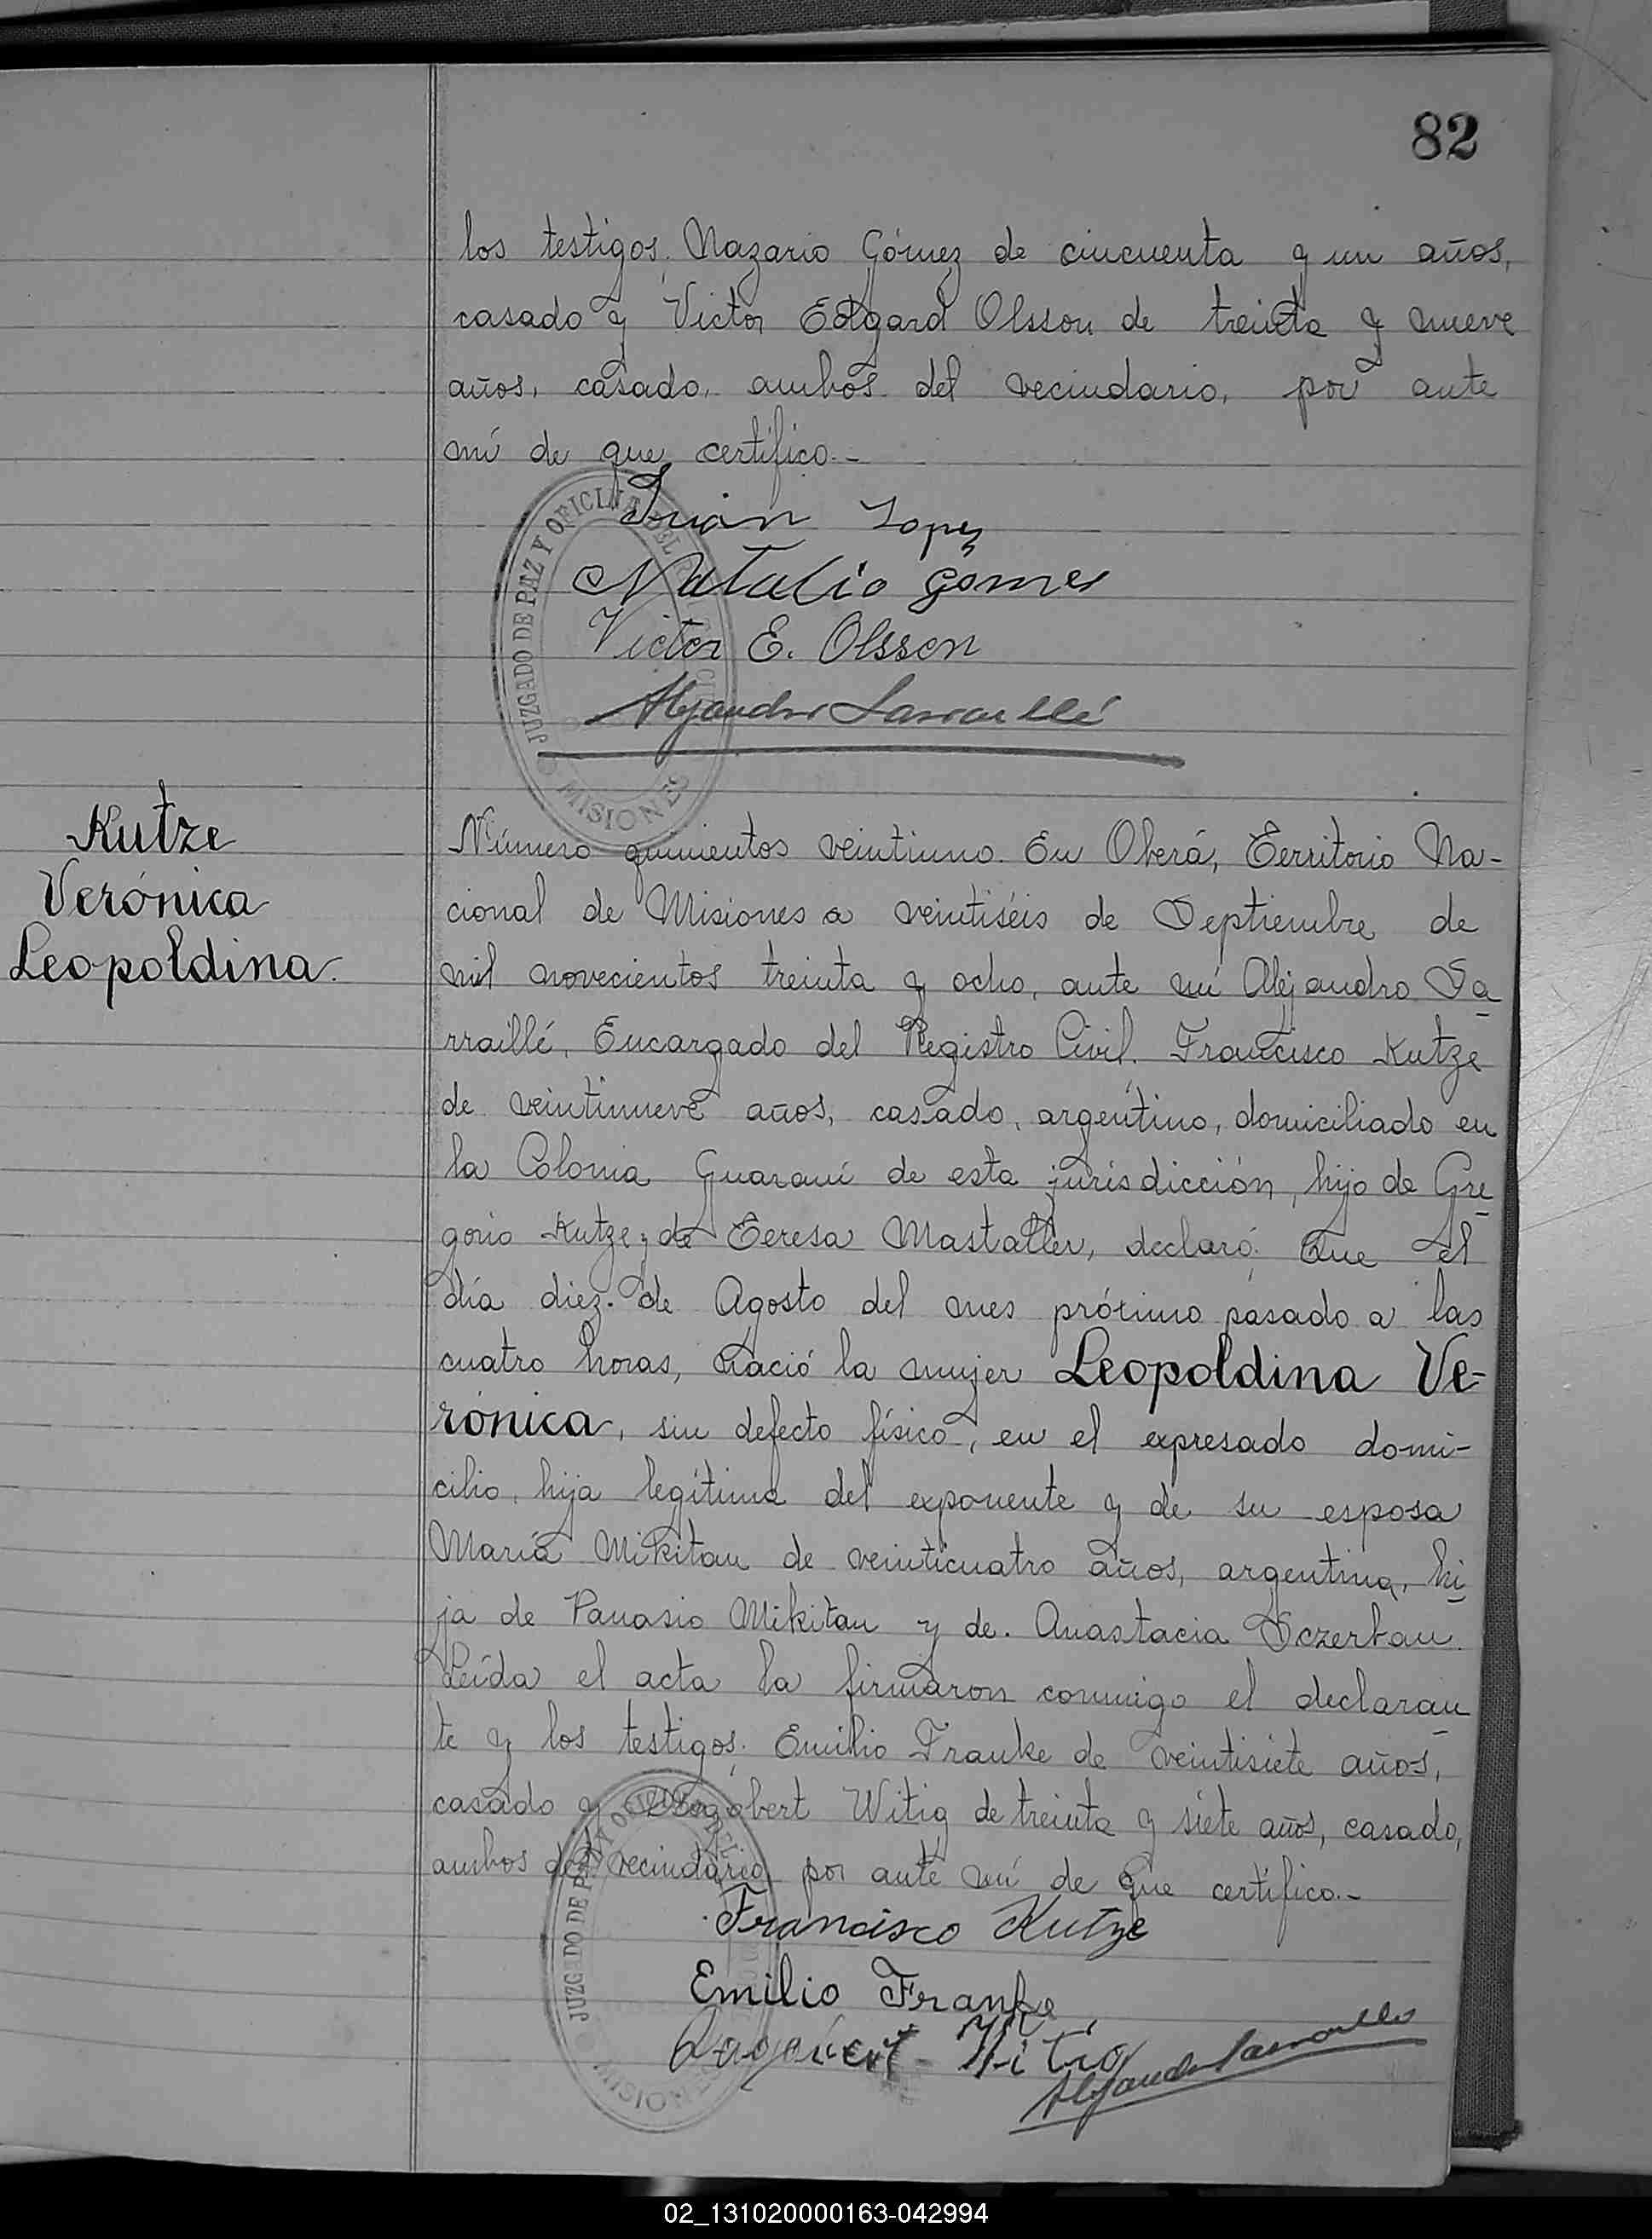 82
los testigos, Nazario Gómez de cincuenta y un años,
casado y Victor Edgard Olsson de treinta y nueve
años, casado, ambos del vecindario, por ante
mí de que certifico.-
Lopez
Natalio Gomes
Victor E. Olsson
Alejandro Sarraillé
JUZGADO DE PAZ Y OFICINA DEL
MISIONES
Kutze
Verónica
Leopoldina.
Número quinientos veintiuno. En Oberá, Territorio Na-
cional de Misiones a veintiséis de Septiembre de
mil novecientos treinta y ocho, ante mí Alejandro Sa
rraillé, Encargado del Registro Civil. Francisco Kutze
de veintinueve años, casado, argentino, domiciliado en
la Colonia Guaraní de esta jurisdicción, hijo de Gre
gorio Kutze y de Teresa Mastaller, declaró: Que el
día diez de Agosto del mes próximo pasado a las
cuatro horas, nació la mujer Leopoldina Ve-
rónica, sin defecto físico, en el expresado domi-
cilio, hija legítima del exponente y de su esposa
María Mikitau de veinticuatro años, argentina, hi
ja de Panasio Mikitau y de Anastacia
Leída el acta la firmaron conmigo el declaran
te y los testigos: Emilio Franke de veintisiete años,
casado y Witig de treinta y siete años, casado,
ambos del vecindario por ante mí de que certifico.-
Francisco Kutze
Emilio Franke
Witig
Alejandro Sarraillé
JUZGADO DE PAZ Y OFICINA DEL
MISIONES
02_131020000163-042994